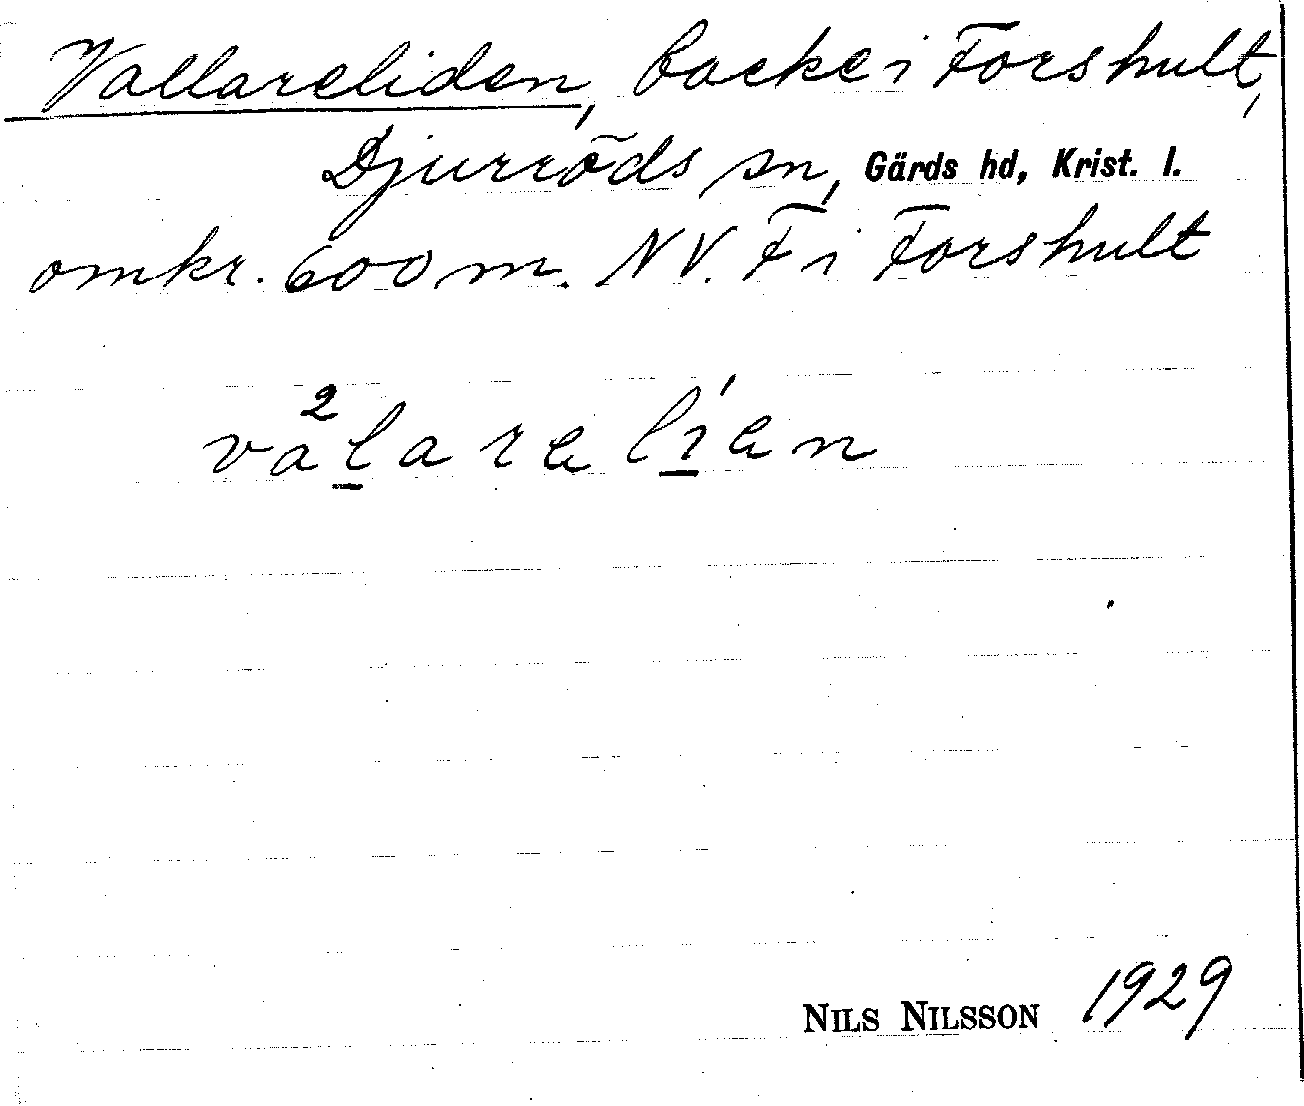 Vallareliden, backe i Forshult,
Djurröds sn, Gärds hd, Krist. l.
omkr. 600 m. NV. F i Forshult
va²larelíen
Nils Nilsson 1929